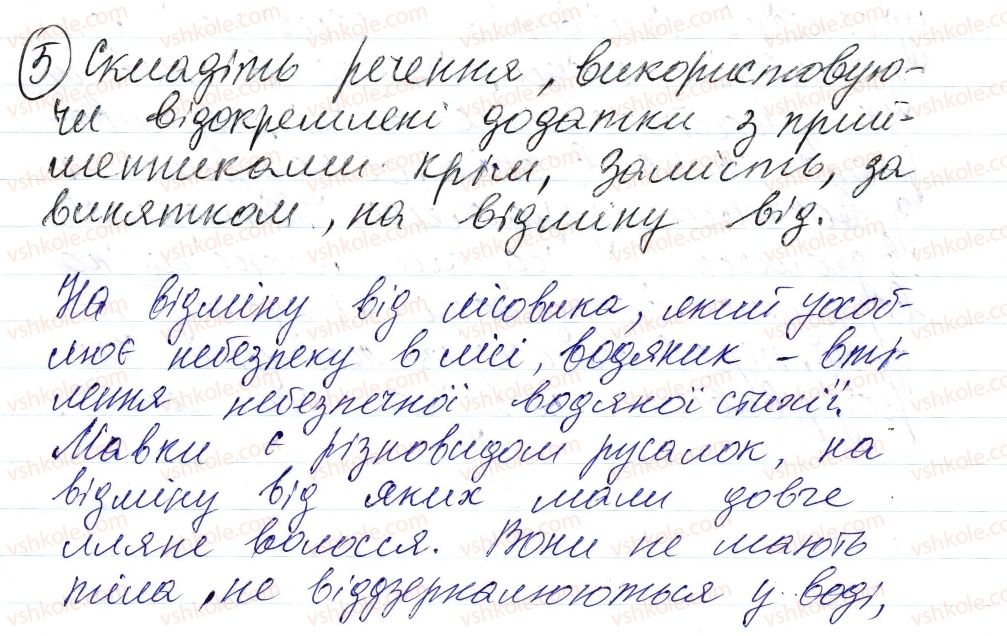 5 Складіть речення, використовую-
чи відокремлені додатки з прий-
менниками крім, замість, за
винятком, на відміну від.
На відміну від лісовика, який уособ-
лює небезпеку в лісі, водяник – вті-
лення небезпечної водяної стихії.
Мавки є різновидом русалок, на
відміну від яких мали довге
лляне волосся. Вони не мають
тіла, не віддзеркалюються у воді,